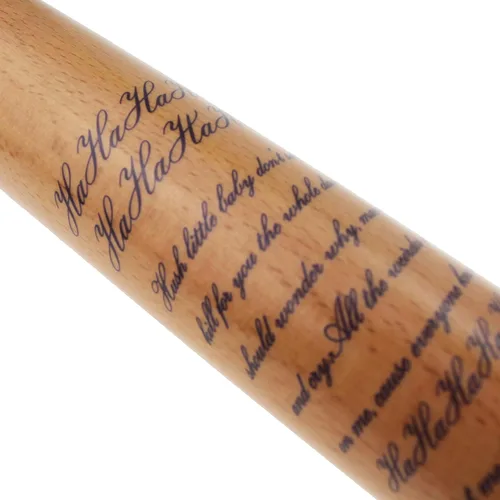 HaHaHaHa
HaHaHaHa
Hush little baby don't
kill for you the whole
should wonder why,
and cry. All the
on me, cause everyone
HaHaHaHa